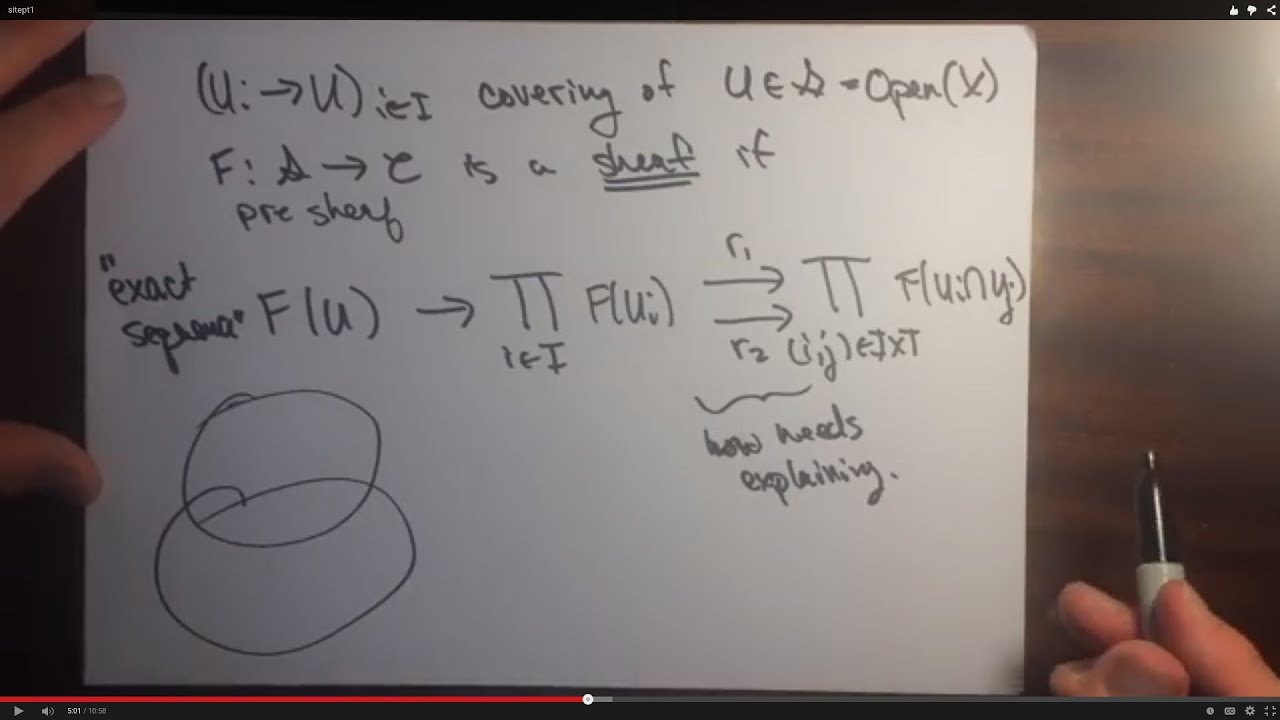 sitept1
(Ui → U) i∈I covering of U ∈ 𝒮 = Open(X)
F: 𝒮 → 𝒞 is a sheaf if
pre sheaf
"exact F(U) → ∏ i∈I F(Ui) ⇉ r1 r2 ∏ (i,j)∈I×I F(Ui∩Uj)
now needs
explaining.
5:01 / 10:58